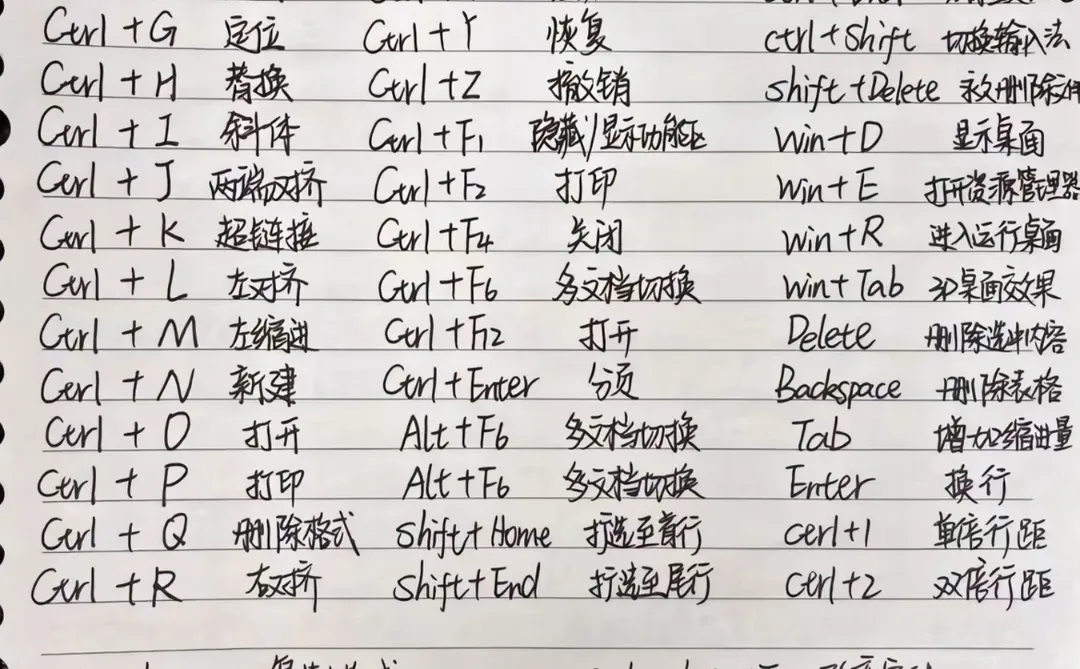 Ctrl + G 定位 Ctrl + Y 恢复 ctrl + Shift 切换输入法
Ctrl + H 替换 Ctrl + Z 撤销 Shift + Delete 永久删除文件
Ctrl + I 斜体 Ctrl + F1 隐藏/显示功能区 Win + D 显示桌面
Ctrl + J 两端对挤 Ctrl + F2 打印 Win + E 打开资源管理器
Ctrl + K 超链接 Ctrl + F4 关闭 Win + R 进入运行桌面
Ctrl + L 左对齐 Ctrl + F6 多文档切换 Win + Tab 3D桌面效果
Ctrl + M 左缩进 Ctrl + F12 打开 Delete 删除选中内容
Ctrl + N 新建 Ctrl + Enter 分页 Backspace 删除表格
Ctrl + O 打开 Alt + F6 多文档切换 Tab 增加缩进量
Ctrl + P 打印 Alt + F6 多文档切换 Enter 换行
Ctrl + Q 删除格式 Shift + Home 打选至首行 Ctrl + 1 单倍行距
Ctrl + R 右对挤 Shift + End 打选至尾行 Ctrl + 2 双倍行距